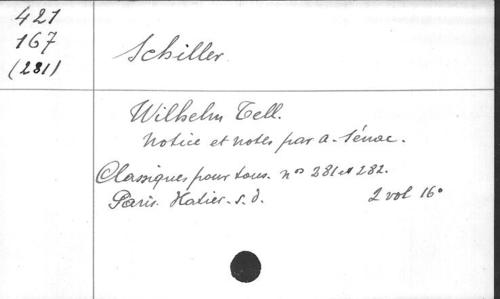 421
167
(281)
Schiller.
Wilhelm Tell.
Notice et notes par A. Sénac.
Classiques pour tous. nos 281 et 282.
Paris. Hatier. s.d. 2 vol 16°